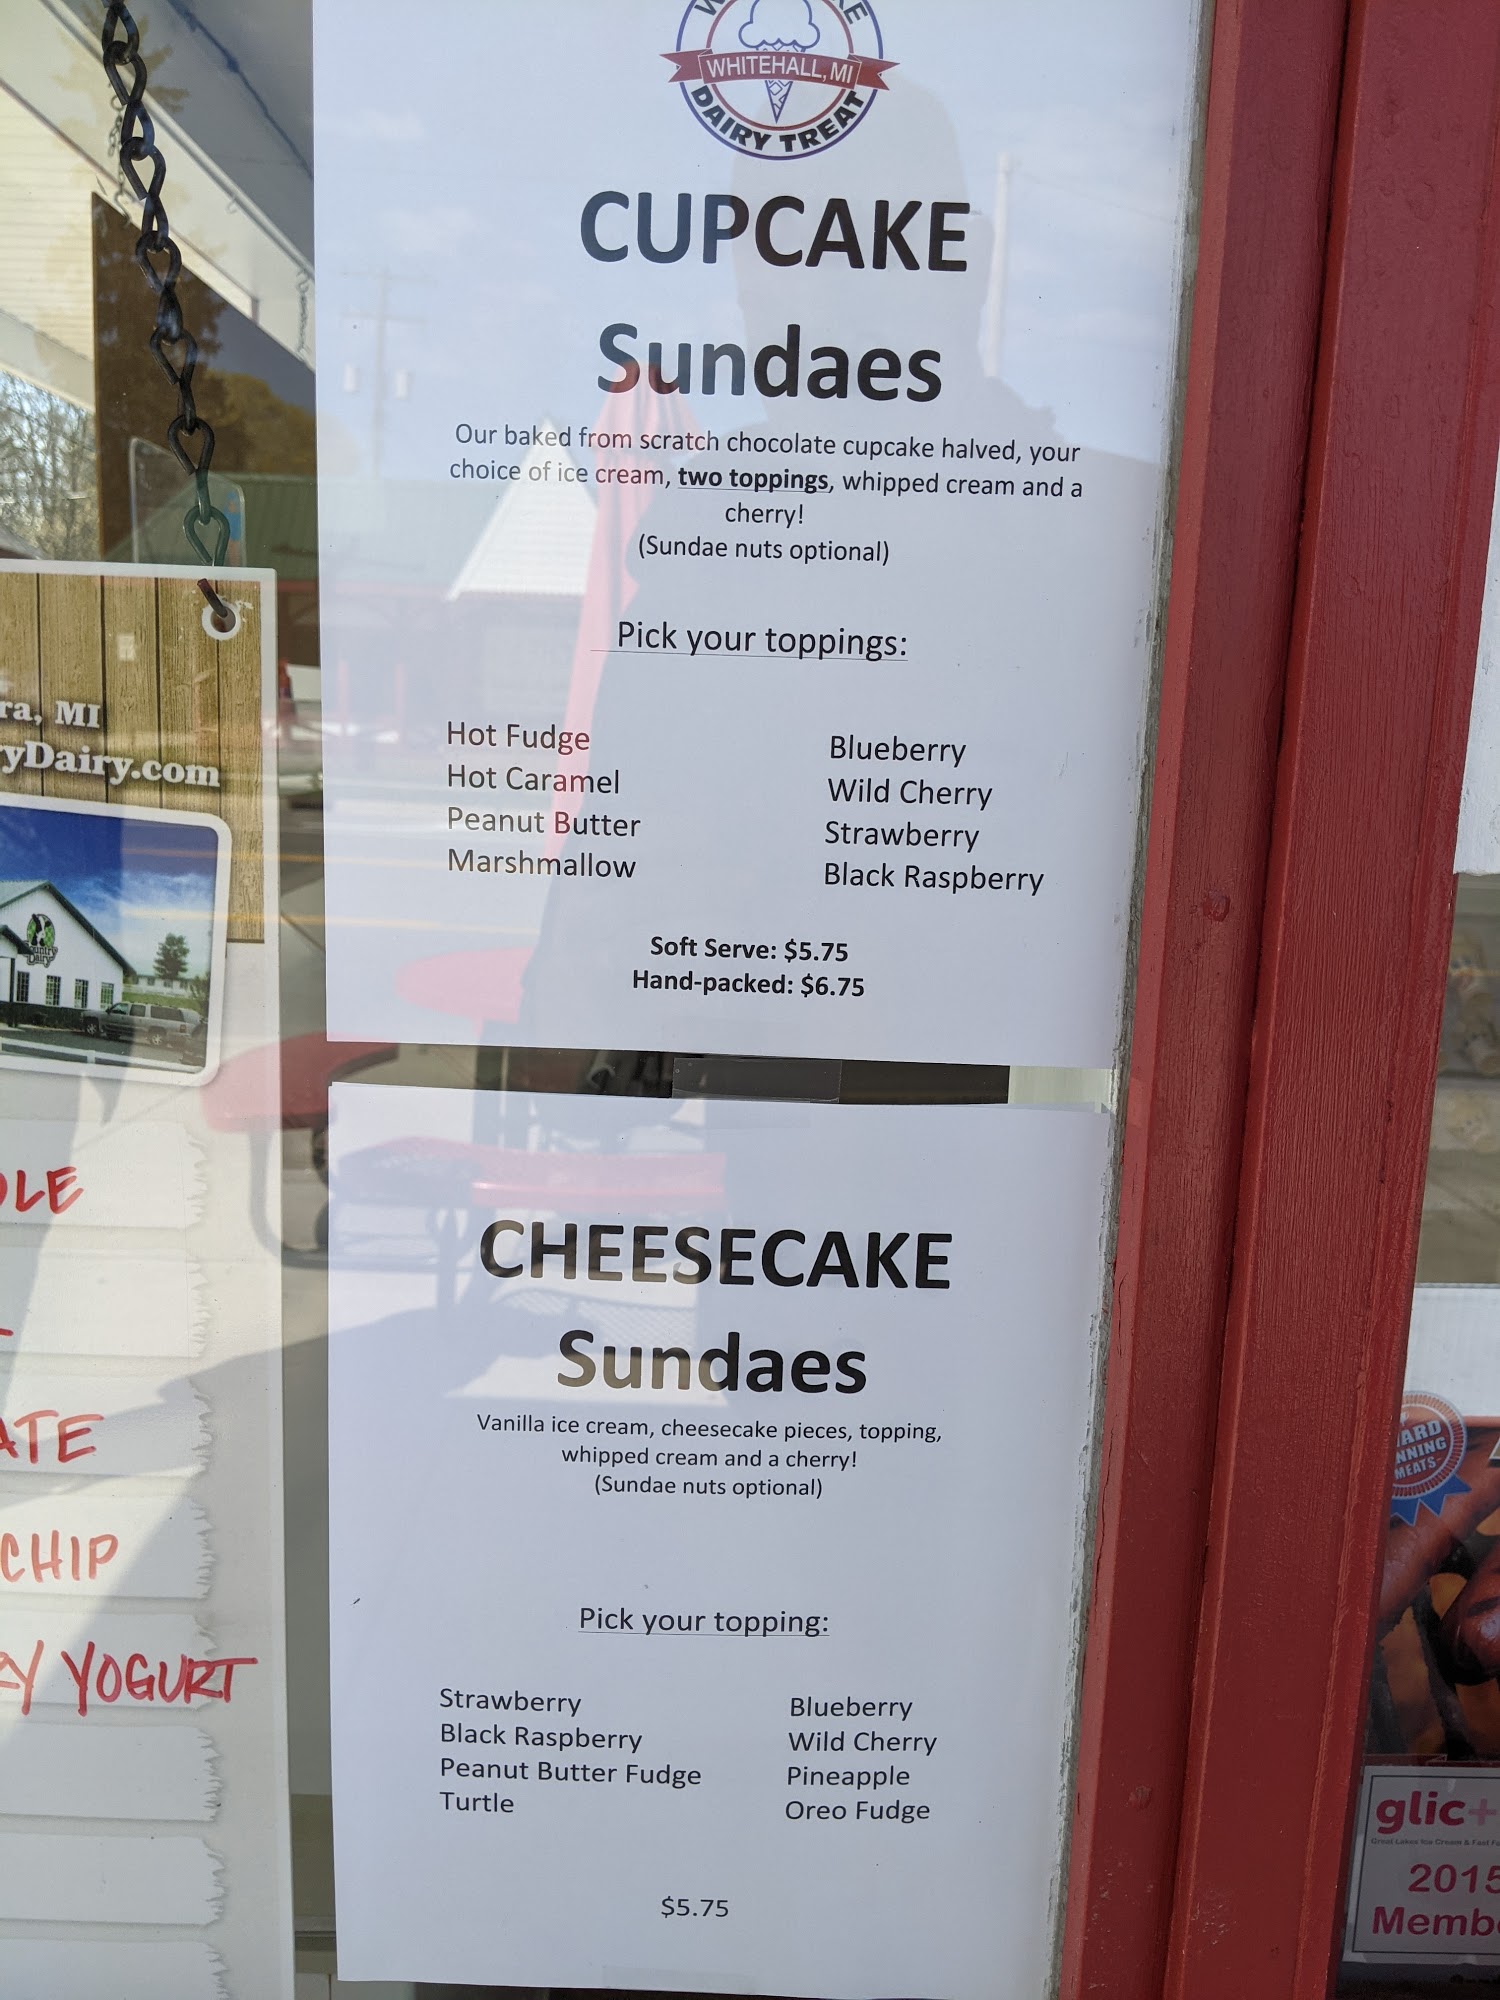 WHITEHALL, MI
DAIRY TREAT
CUPCAKE
Sundaes
Our baked from scratch chocolate cupcake halved, your
choice of ice cream, two toppings, whipped cream and a
cherry!
(Sundae nuts optional)
Pick your toppings:
Hot Fudge
Hot Caramel
Peanut Butter
Marshmallow
Blueberry
Wild Cherry
Strawberry
Black Raspberry
Soft Serve: $5.75
Hand-packed: $6.75
CHEESECAKE
Sundaes
Vanilla ice cream, cheesecake pieces, topping,
whipped cream and a cherry!
(Sundae nuts optional)
Pick your topping:
Strawberry
Black Raspberry
Peanut Butter Fudge
Turtle
Blueberry
Wild Cherry
Pineapple
Oreo Fudge
$5.75
ra, MI
yDairy.com
Country
Dairy
OLE
ATE
CHIP
RY YOGURT
ARD
NNING
MEATS
glic+
Great Lakes Ice Cream & Fast F
2015
Memb